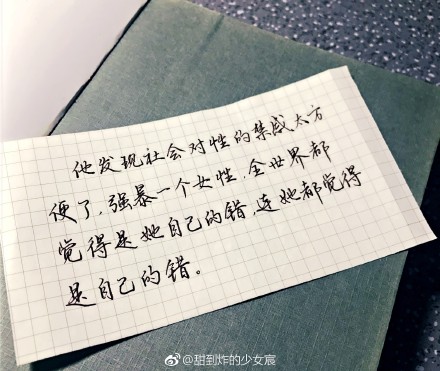 他发现社会对性的禁忌太方
便了,强暴一个女性,全世界都
觉得是她自己的错,连她都觉得
是自己的错。
@甜到炸的少女宸